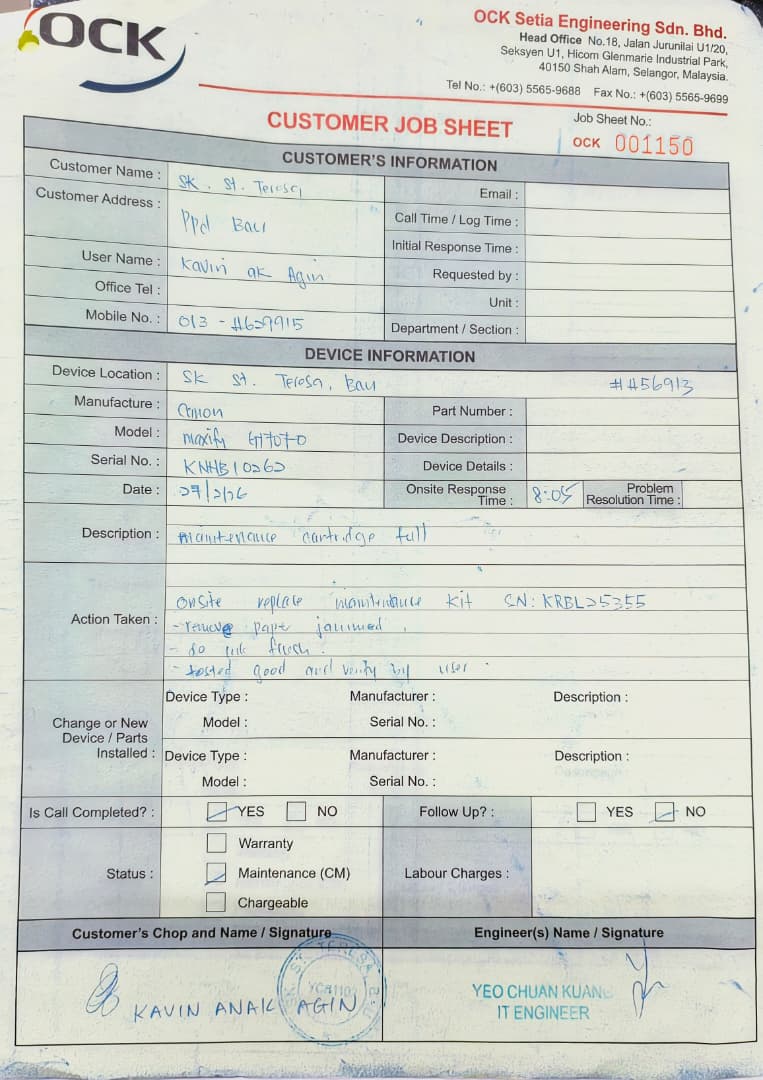 OCK
OCK Setia Engineering Sdn. Bhd.
Head Office No.18, Jalan Jurunilai U1/20,
Seksyen U1, Hicom Glenmarie Industrial Park,
40150 Shah Alam, Selangor, Malaysia.
Tel No.: +(603) 5565-9688 Fax No.: +(603) 5565-9699
CUSTOMER JOB SHEET
Job Sheet No.:
OCK 001150
CUSTOMER'S INFORMATION
Customer Name : SK. St. Teresa
Email :
Customer Address : PPd Bau
Call Time / Log Time :
Initial Response Time :
User Name : Kavin ak Agin
Requested by :
Office Tel :
Unit :
Mobile No. : 013 -
Department / Section :
DEVICE INFORMATION
Device Location : SK St. Teresa, Bau
Manufacture : Canon
Part Number :
Model : maxify
Device Description :
Serial No. : KNHB10262
Device Details :
Date : 27/2/26
Onsite Response Time : 8:05
Problem Resolution Time :
Description : maintenance cartridge full
Action Taken :
Onsite replace maintenance kit SN: KRBL25355
- remove paper jammed.
- do ink flush.
- tested good and verify by user.
Change or New Device / Parts Installed :
Device Type : Manufacturer : Description :
Model : Serial No. :
Device Type : Manufacturer : Description :
Model : Serial No. :
Is Call Completed? : YES NO
Follow Up? : YES NO
Status :
Warranty
Maintenance (CM)
Chargeable
Labour Charges :
Customer's Chop and Name / Signature
Engineer(s) Name / Signature
KAVIN ANAK AGIN
YEO CHUAN KUANG
IT ENGINEER